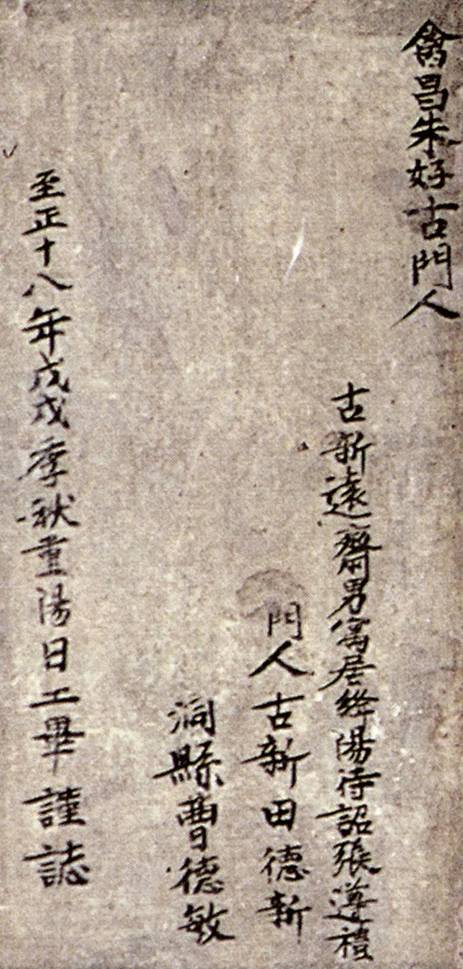 禽昌朱好古門人
古新遠齋男寓居絳陽待詔張遵禮
門人古新田德新
洞縣曹德敏
至正十八年戊戌季秋重陽日工畢謹誌